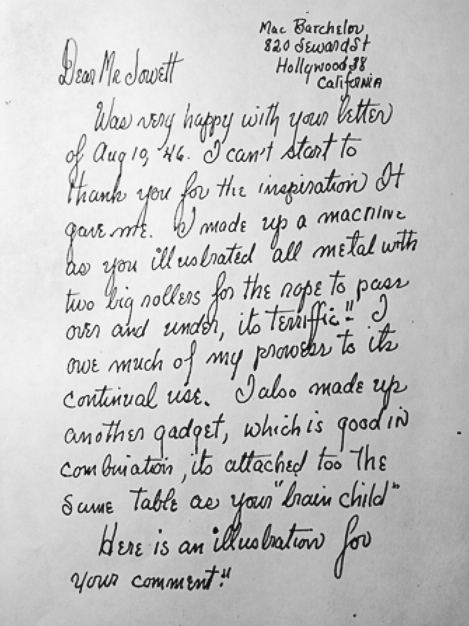 Mac Batchelor
820 Seward St
Hollywood 38
California
Dear Mr Jowett
Was very happy with your letter
of Aug 10, '46. I can't start to
thank you for the inspiration It
gave me. I made up a machine
as you illustrated all metal with
two big rollers for the rope to pass
over and under, its terriffic!! I
owe much of my prowess to its
continual use. I also made up
another gadget, which is good in
combination, its attached too the
same table as your "brain child"
Here is an illustration for
your comment!!